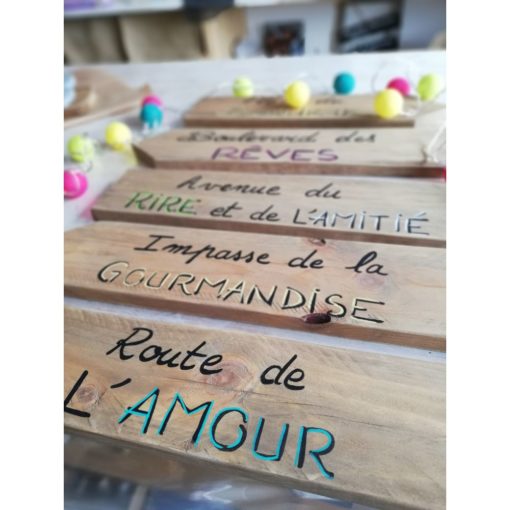 Boulevard des
RÊVES
Avenue du
RIRE et de L'AMITIÉ
Impasse de la
GOURMANDISE
Route de
L'AMOUR